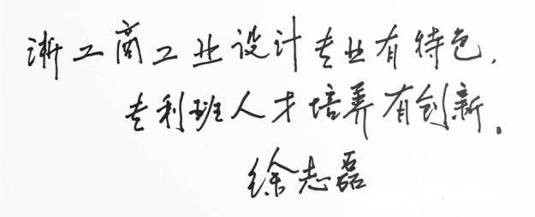 浙工商工业设计专业有特色,
专利班人才培养有创新。
徐志磊